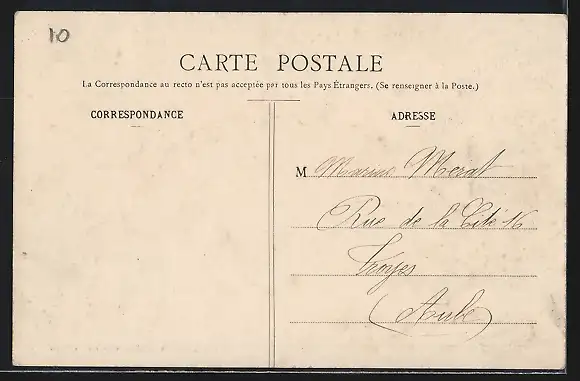 10
CARTE POSTALE
La Correspondance au recto n'est pas acceptée par tous les Pays Étrangers. (Se renseigner à la Poste.)
CORRESPONDANCE
ADRESSE
M Marius Merat
Rue de la Cité 16
Troyes
(Aube)